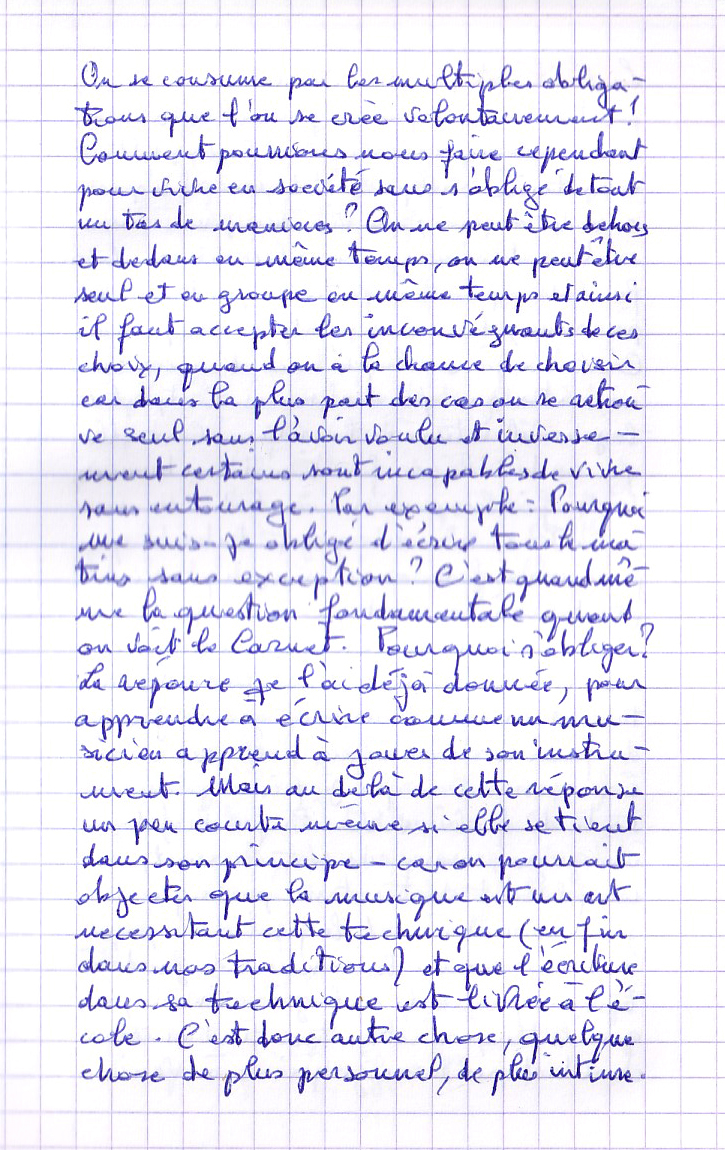 On se consume par les multiples obliga-
tions que l'on se crée volontairement!
Comment pourrions nous faire cependant
pour vivre en société sans s'obligé de tout
un tas de manières? On ne peut être dehors
et dedans en même temps, on ne peut être
seul et en groupe en même temps et ainsi
il faut accepter les inconvégnants de ces
choix, quand on à la chance de choisir
car dans la plus part des cas on se retrou-
ve seul sans l'avoir voulu et inverse-
ment certains sont incapables de vivre
sans entourage. Par exemple: Pourquoi
me suis-je obligé d'écrire tous le ma-
tins sans exception? C'est quand mê-
me la question fondamentale quant
on voit le Carnet. Pourquoi s'obliger?
La réponse je l'ai déjà donnée, pour
apprendre à écrire comme un mu-
sicien apprend à jouer de son instru-
ment. Mais au delà de cette réponse
un peu courte même si elle se tient
dans son principe - car on pourrait
objecter que la musique est un art
necessitant cette technique (en fin
dans nos traditions) et que l'écriture
dans sa technique est livrée à l'é-
cole. C'est donc autre chose, quelque
chose de plus personnel, de plus intime.